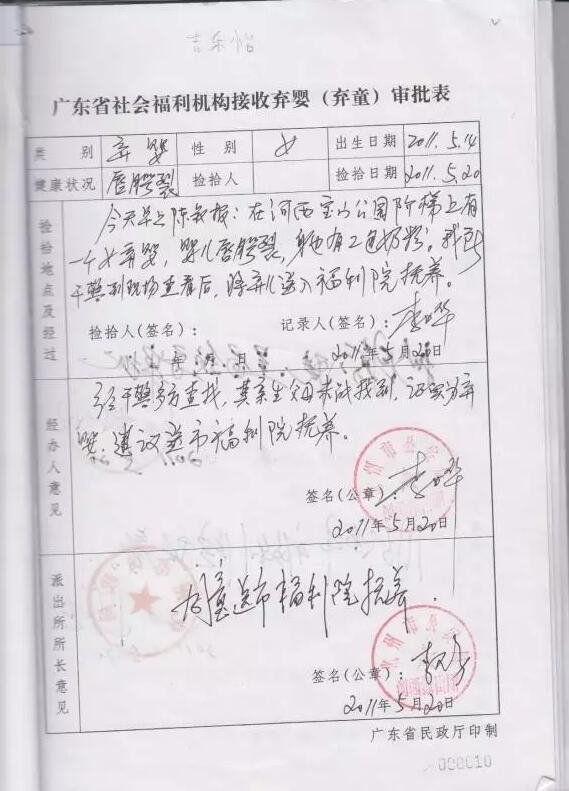 广东省社会福利机构接收弃婴（弃童）审批表
类别 弃婴 性别 女 出生日期 2011.5.14
健康状况 唇腭裂 捡拾人 捡拾日期 2011.5.20
捡拾地点及经过
今天早上陈 报：在河西宝山公园阶梯上有
一个女弃婴，婴儿唇腭裂，身边有2包奶粉。我所
干警到现场查看后，将弃儿送入福利院抚养。
捡拾人（签名）： 记录人（签名）：
年 月 日 2011年5月20日
经办人意见
经干警多方查找，其亲生父母未能找到，证实为弃
婴，建议送市福利院抚养。
签名（公章）：
2011年5月20日
派出所所长意见
同意送市福利院抚养。
签名（公章）：
2011年5月20日
广东省民政厅印制
000010